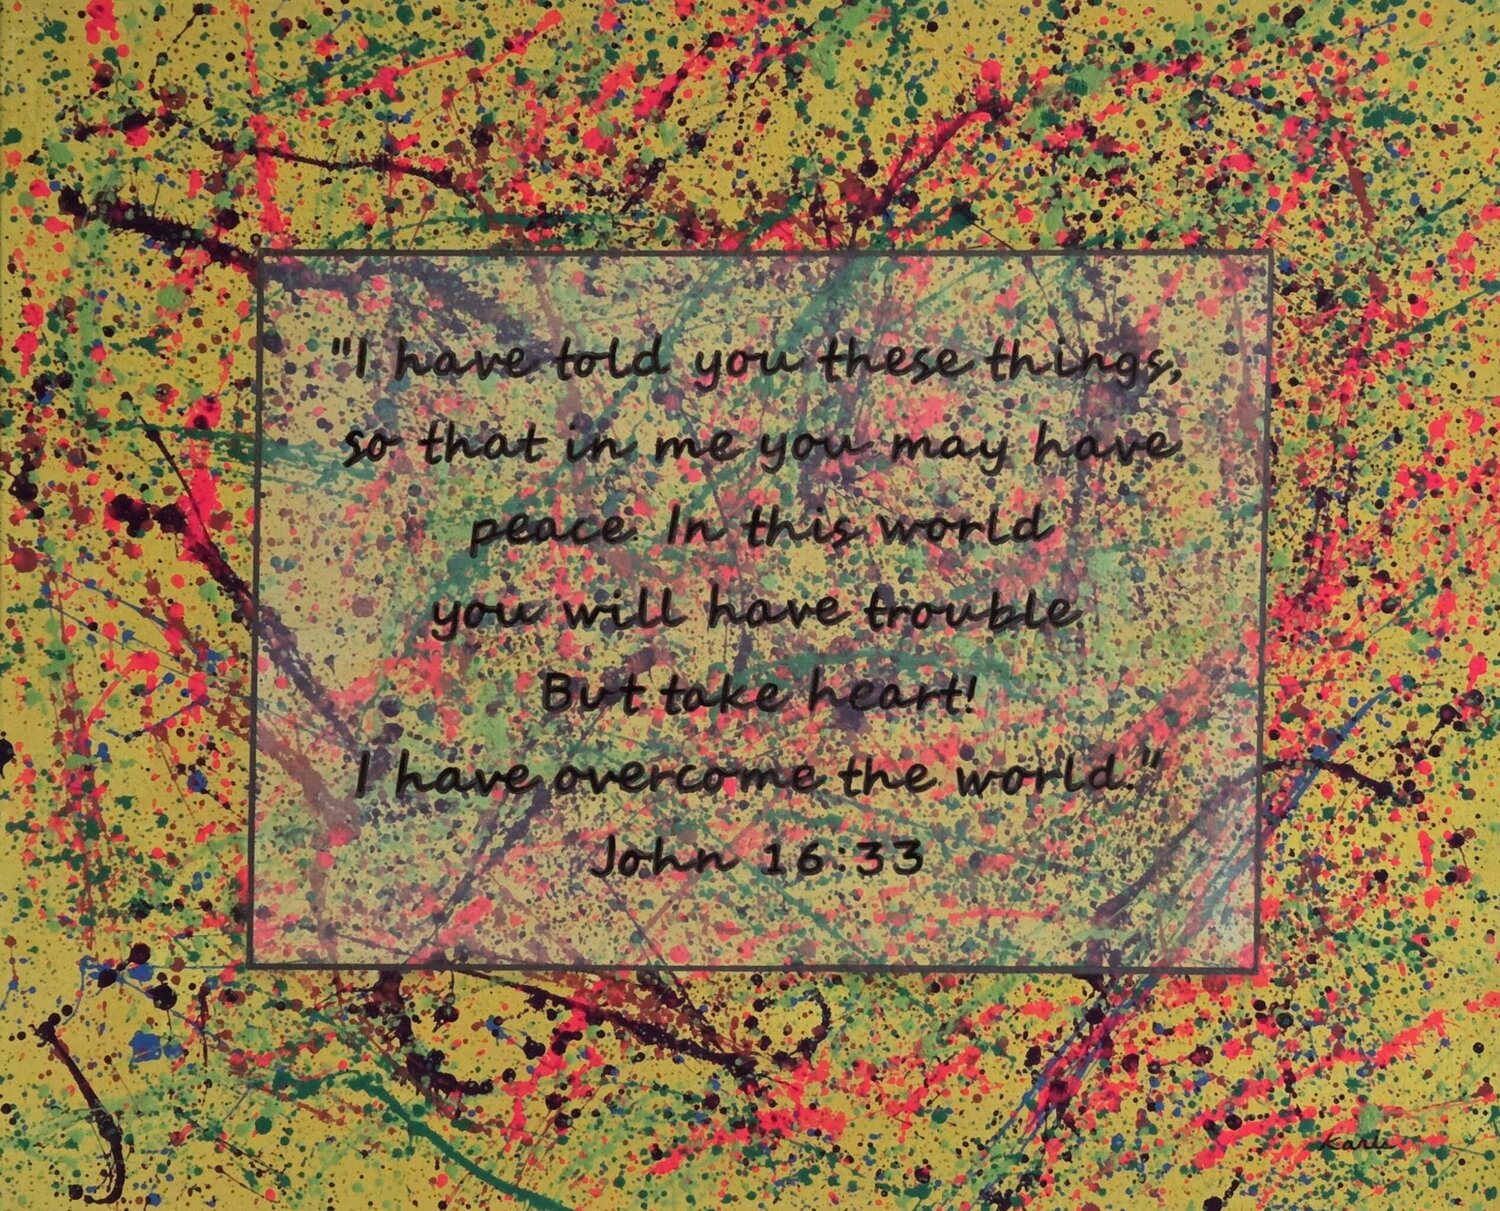 "I have told you these things,
so that in me you may have
peace. In this world
you will have trouble.
But take heart!
I have overcome the world."
John 16:33